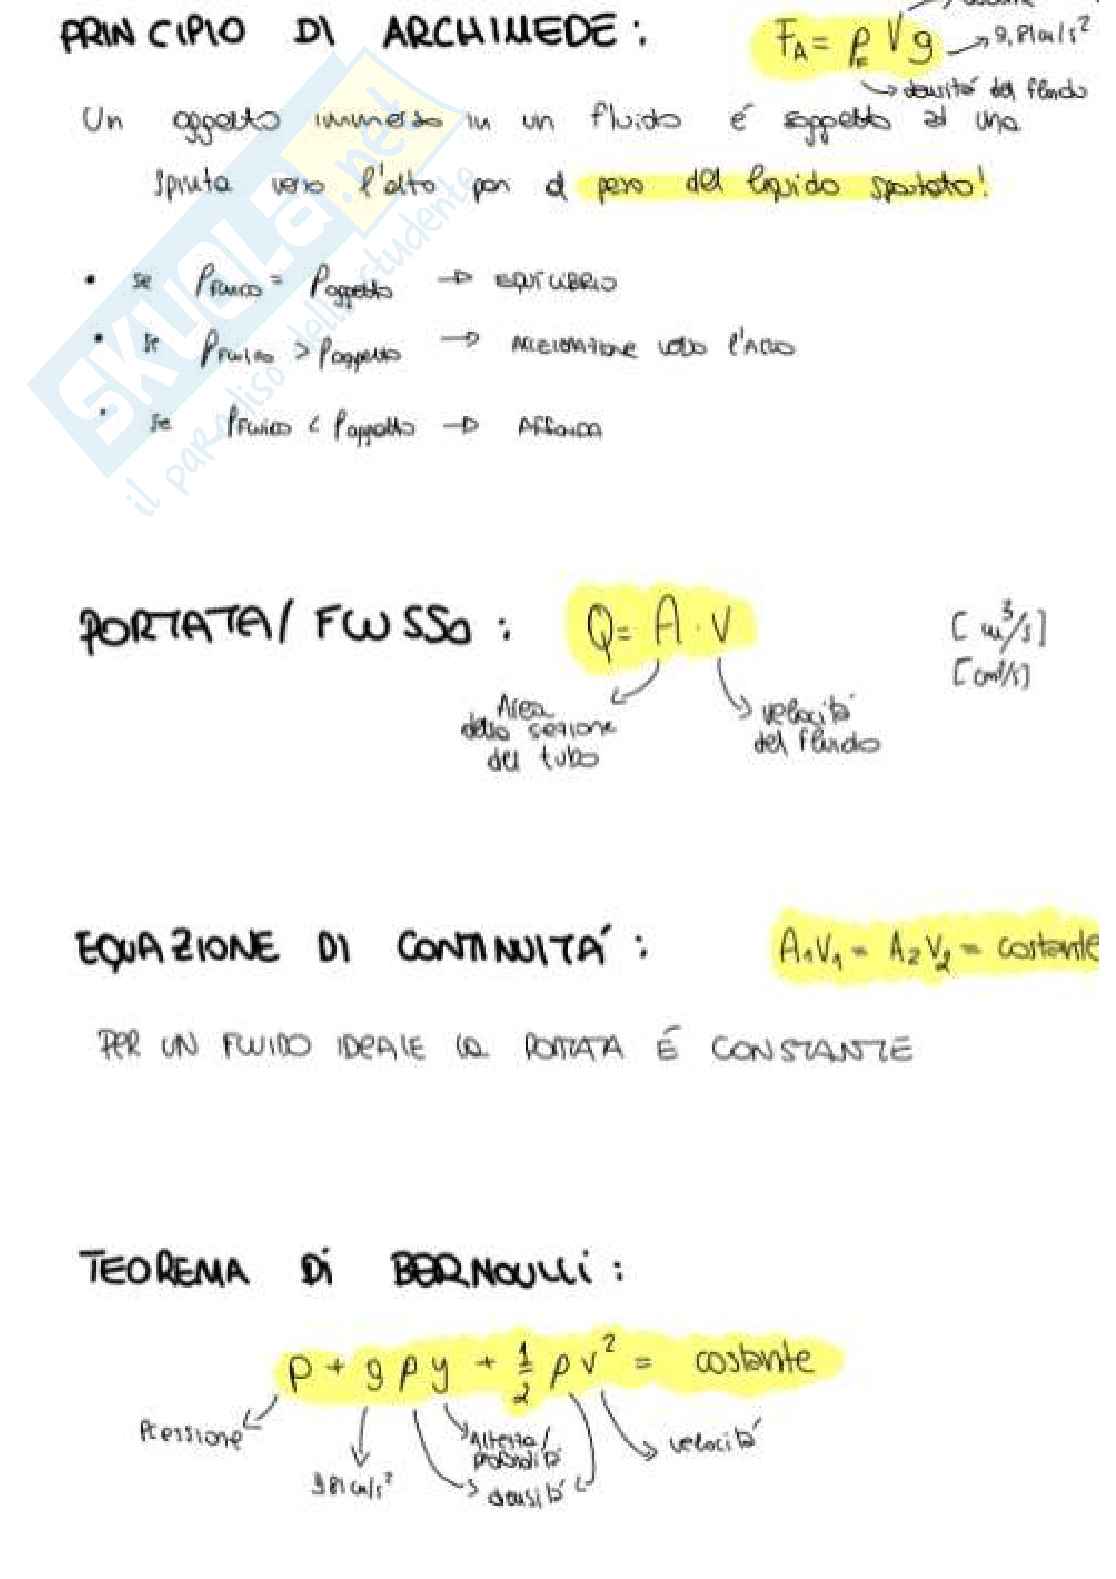 PRINCIPIO DI ARCHIMEDE: F_A = ρ_F V g → 9,81 m/s²
→ densitá del fluido
Un oggetto immerso in un fluido é soggetto ad una
spinta verso l'alto pari al peso del liquido spostato!
• se ρ_FLUIDO = ρ_oggetto → EQUILIBRIO
• se ρ_FLUIDO > ρ_oggetto → ACCELERAZIONE verso l'ALTO
• se ρ_FLUIDO < ρ_oggetto → AFFONDA
SKUOLA.net
il paradiso dello studente
PORTATA/FLUSSO: Q = A · v [m³/s]
[cm³/s]
Area
della sezione
del tubo
velocitá
del fluido
EQUAZIONE DI CONTINUITÁ: A₁V₁ = A₂V₂ = costante
PER UN FLUIDO IDEALE la PORTATA É CONSTANTE
TEOREMA Di BERNOULLi:
p + g ρ y + 1/2 ρ v² = costante
Pressione
9,81 m/s²
Altezza/
profonditá
densitá
velocitá